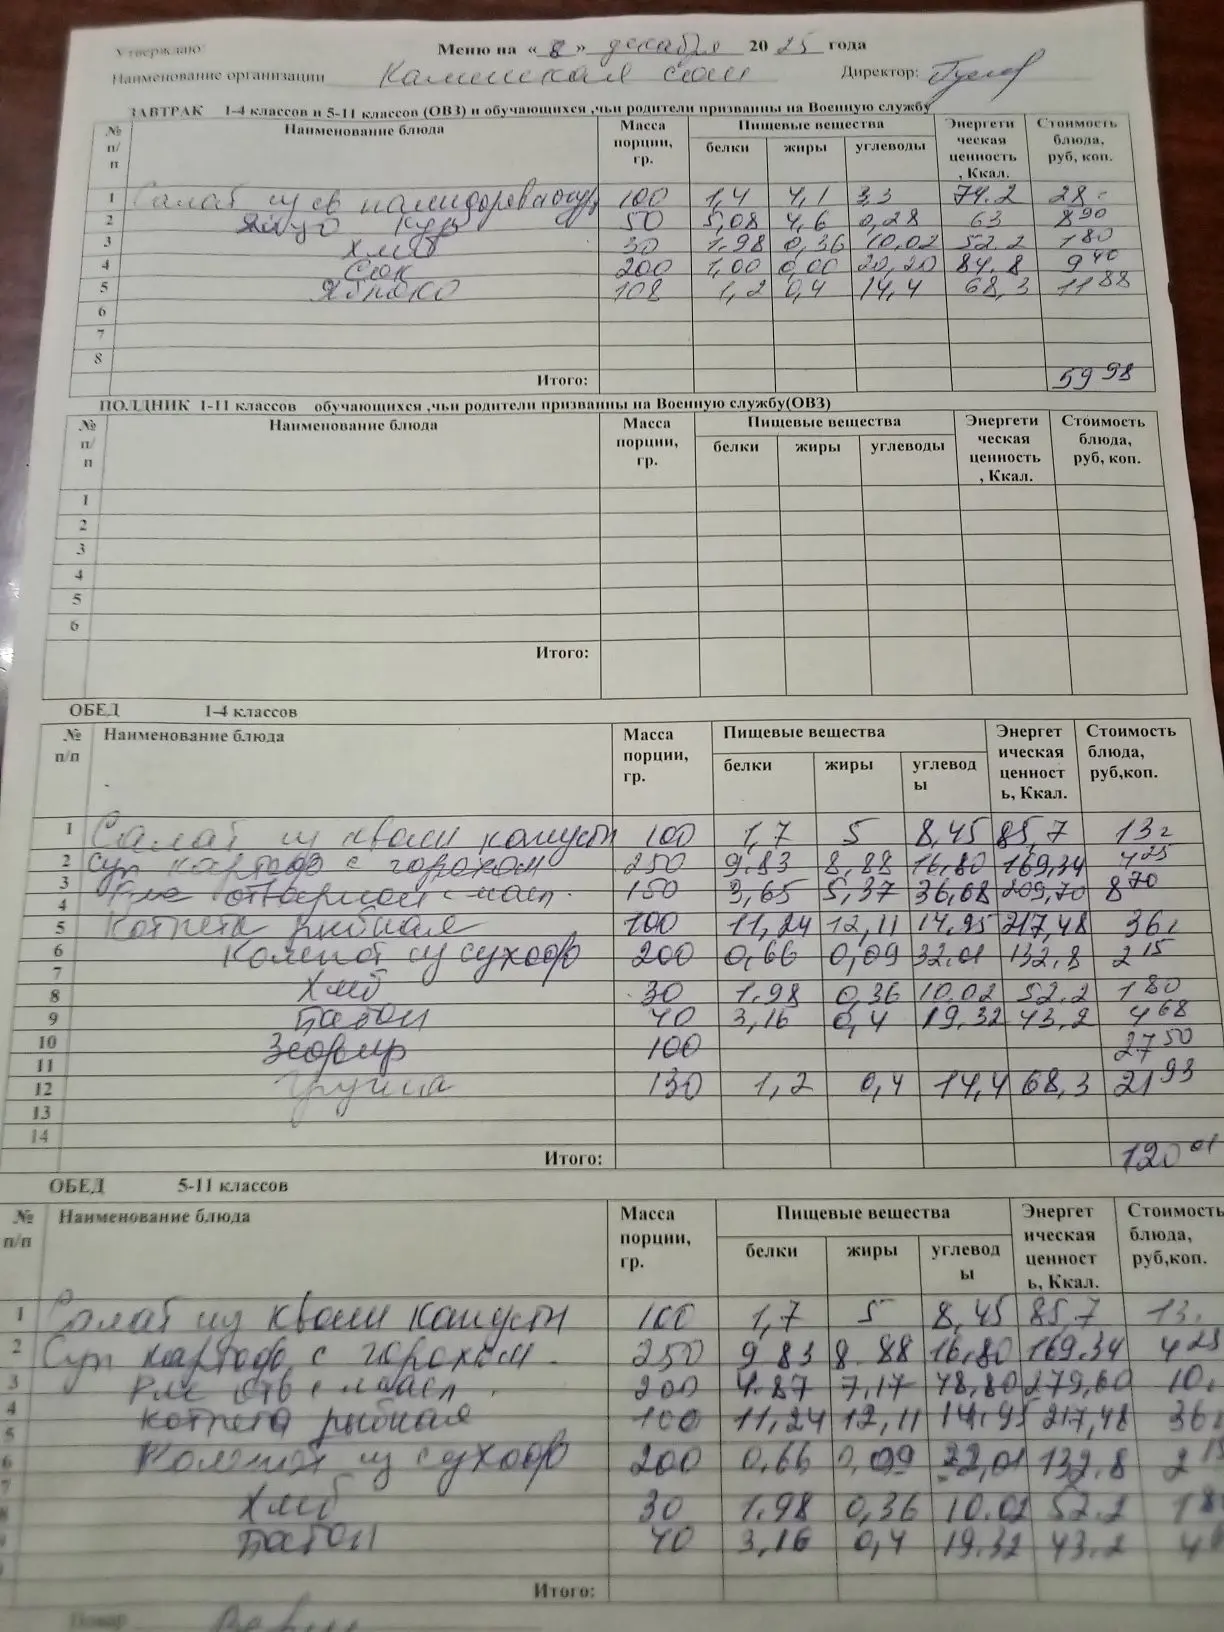 Утверждаю: Меню на « 8 » декабря 20 25 года
Наименование организации Калинская сош Директор:
ЗАВТРАК 1-4 классов и 5-11 классов (ОВЗ) и обучающихся ,чьи родители призванны на Военную службу
№ п/п Наименование блюда Масса порции, гр. Пищевые вещества Энергетическая ценность, Ккал. Стоимость блюда, руб, коп.
белки жиры углеводы
1 Салат из св помидоров 100 1,4 4,1 3,3 74.2 28-
2 Яйцо кур 50 5,08 4,6 0,28 63 8 90
3 Хлеб 30 1.98 0,36 10,02 52.2 1 80
4 Сок 200 1,00 0,00 20,20 84.8 9 40
5 Яблоко 108 1,2 0,4 14,4 68,3 11 88
6
7
8
Итого: 59 98
ПОЛДНИК 1-11 классов обучающихся ,чьи родители призванны на Военную службу(ОВЗ)
№ п/п Наименование блюда Масса порции, гр. Пищевые вещества Энергетическая ценность, Ккал. Стоимость блюда, руб, коп.
белки жиры углеводы
1
2
3
4
5
6
Итого:
ОБЕД 1-4 классов
№ п/п Наименование блюда Масса порции, гр. Пищевые вещества Энергетическая ценность, Ккал. Стоимость блюда, руб,коп.
белки жиры углеводы
1 Салат из кваш капусты 100 1,7 5 8,45 85,7 13
2 Суп картоф с горохом 250 9.83 8,88 16,80 169,34 4 25
3 Рис отварной с масл. 150 3,65 5,37 36,68 209,70 8 70
4
5 Котлета рыбная 100 11,24 12,11 14,95 217,48 36
6 Компот из сухофр 200 0,66 0,09 32.01 132,8 2 15
7
8 Хлеб 30 1.98 0,36 10.02 52.2 1 80
9 Батон 40 3,16 0,4 19,32 43,2 4 68
10 Зефир 100 27 50
11
12 груша 130 1,2 0,4 14,4 68,3 21 93
13
14
Итого: 120 01
ОБЕД 5-11 классов
№ п/п Наименование блюда Масса порции, гр. Пищевые вещества Энергетическая ценность, Ккал. Стоимость блюда, руб,коп.
белки жиры углеводы
1 Салат из кваш капусты 100 1,7 5 8,45 85,7 13.
2 Суп картоф с горохом. 250 9 83 8.88 16,80 169.34 4 25
3 Рис отв с масл. 200 4.87 7,17 48,80 279,60 10.
4 котлета рыбная 100 11,24 12,11 14,95 217,48 36
5
6 Компот из сухофр 200 0,66 0,09 32,01 132.8 2
7
Хлеб 30 1.98 0,36 10.02 52.2 1 8
Батон 40 3,16 0,4 19.32 43.2 4
Итого:
Повар